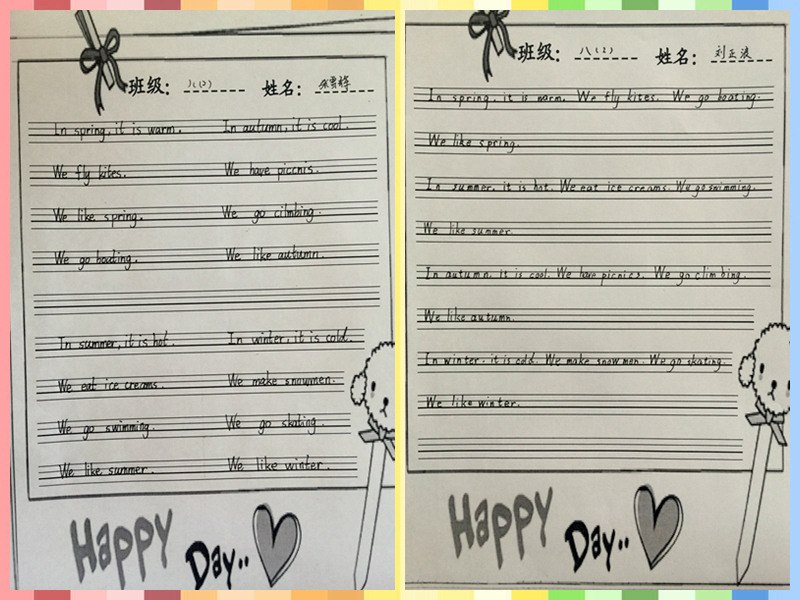 班级: 八(2) 姓名:
In spring, it is warm. In autumn, it is cool.
We fly kites. We have piccnis.
We like spring. We go cilmbing.
We go boating. We like autumn.
In summer, it is hot. In winter, it is cold.
We eat ice creams. We make snowmen.
We go swimming. We go skating.
We like summer. We like winter.
HAPPY
DAY..
班级: 八(2) 姓名: 刘正
In spring, it is warm. We fly kites. We go boating.
We like spring.
In summer, it is hot. We eat ice creams. We go swimming.
We like summer.
In autumn, it is cool. We have picnics. We go climbing.
We like autumn.
In winter, it is cold. We make snowmen. We go skating.
We like winter.
HAPPY
DAY..